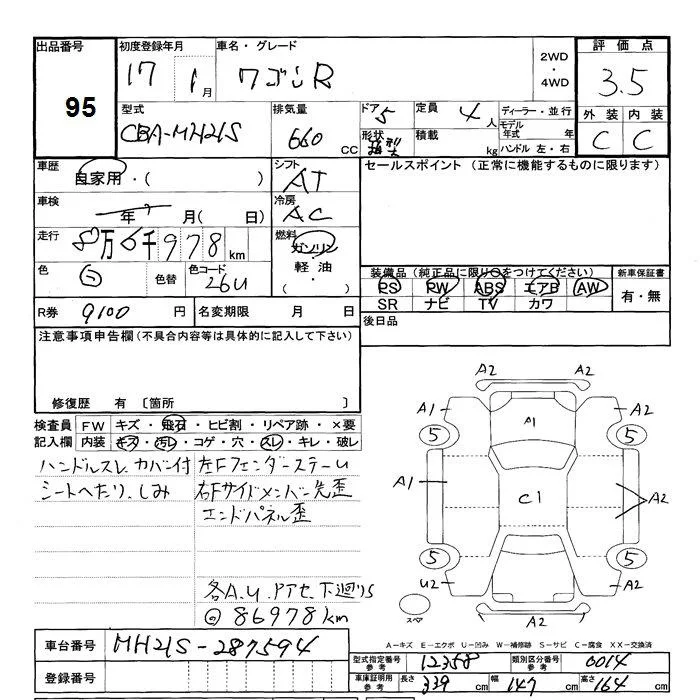 出品番号 初度登録年月 車名・グレード 2WD ・ 4WD 評価点
95 17 1月 ワゴンR 3.5
型式 排気量 ドア 5 定員 4人 ディーラー・並行 外装 内装
CBA-MH21S 660 CC 形状 積載 kg モデル年式 年 C C
ハンドル 左・右
車歴 自家用・( ) シフト AT セールスポイント(正常に機能するものに限ります)
車検 年 月( 日) 冷房 AC
走行 8万6千978km 燃料 ガソリン・軽油・( )
色 白 色替 色コード 26U 装備品(純正品に限り○をつけてください) 新車保証書
PS PW ABS エアB AW 有・無
SR ナビ TV カワ
R券 9100 円 名変期限 月 日 後日品
注意事項申告欄(不具合内容等は具体的に記入して下さい)
修復歴 有 〔箇所 〕
検査員 FW キズ・飛石・ヒビ割・リペア跡・×要
記入欄 内装 キズ・汚レ・コゲ・穴・スレ・キレ・破レ
ハンドルスレ カバー付 左FフェンダーステーU
シートへたり、しみ 右Fサイドメンバー先歪
エンドパネル歪
各A.U. 下廻りS
86978km
A2 A2
A1 A1 A2
5 5
A1 C1 A2
5 5
U2 A2
A2
スペア
A−キズ E−エクボ U−凹み W−補修跡 S−サビ C−腐食 XX−交換済
車台番号 MH21S-287594
型式指定番号 参考 12358 類別区分番号 参考 0014
登録番号 車庫証明用 参考 長さ 339 cm 幅 147 cm 高さ 164 cm